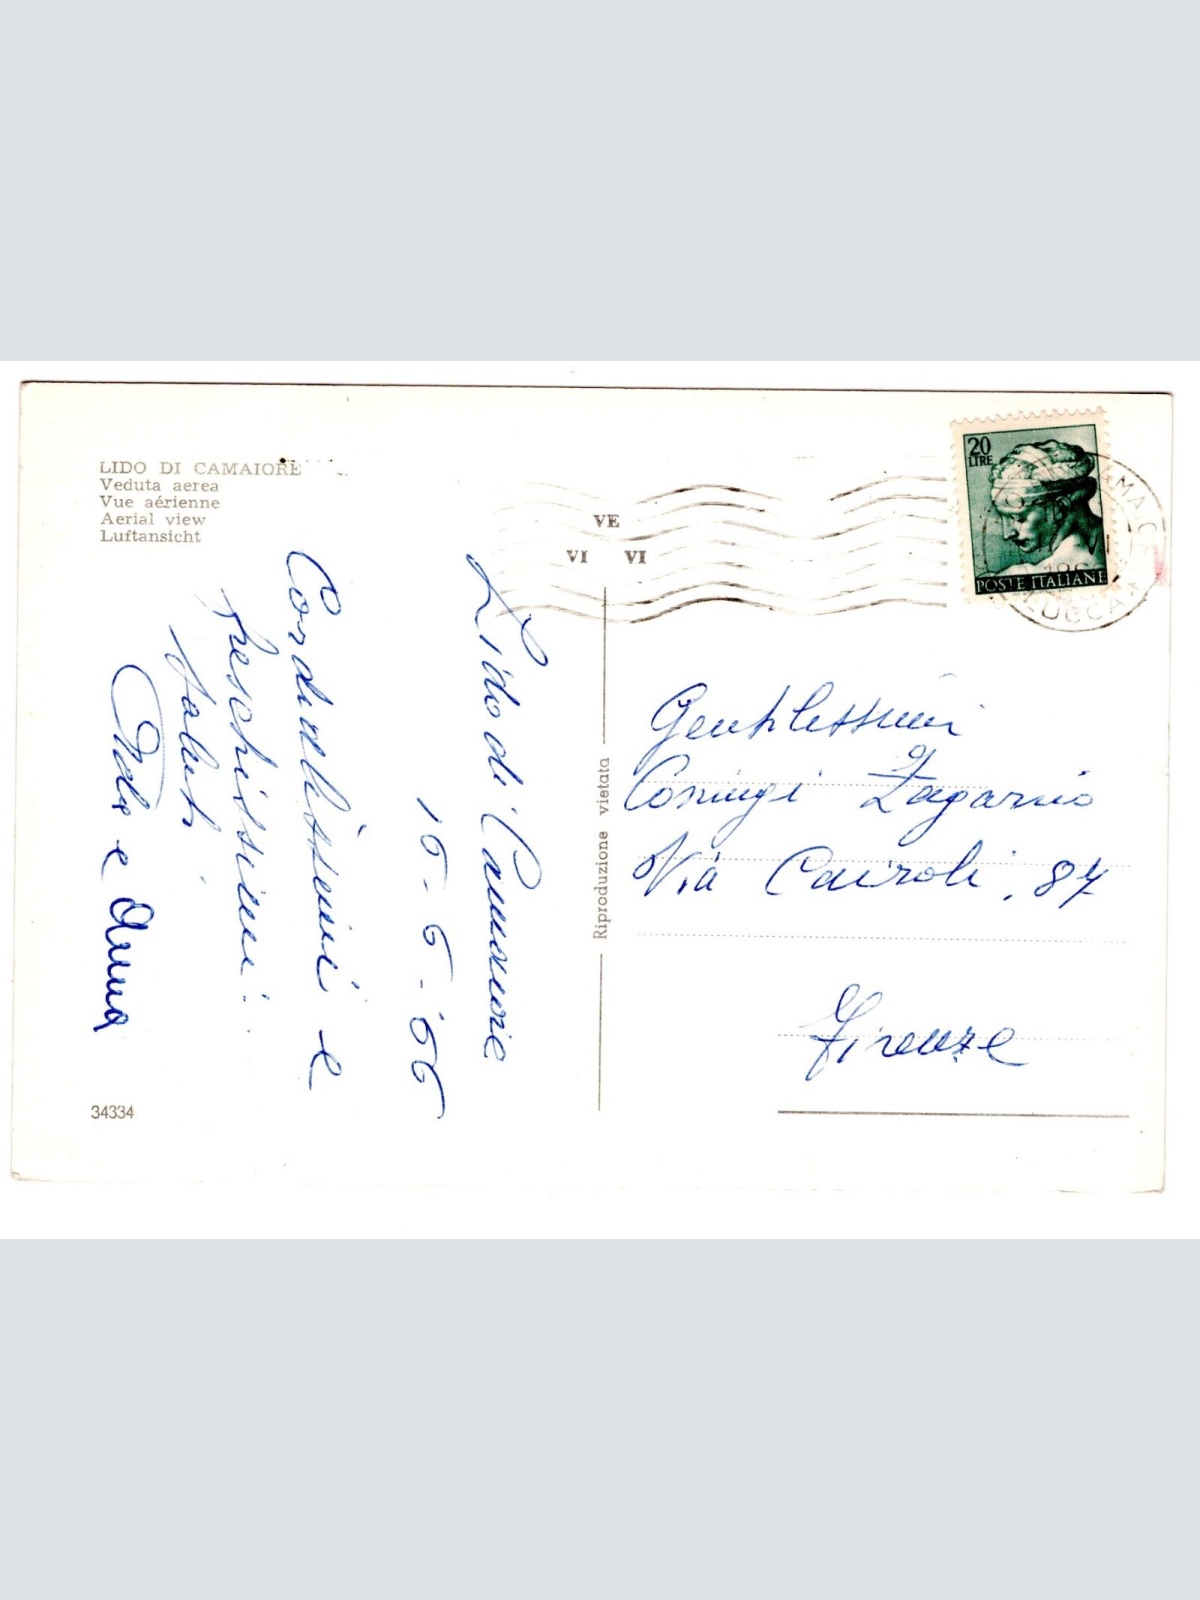 LIDO DI CAMAIORE
Veduta aerea
Vue aérienne
Aerial view
Luftansicht
VE
VI VI
20
LIRE
POSTE ITALIANE
LUCCA
Lido di Camaiore
16-6-'66
Cordialissimi e
freschissimi
saluti
e Anna
34334
Riproduzione vietata
Gentilissimi
Coniugi
Via Cairoli, 87
Firenze